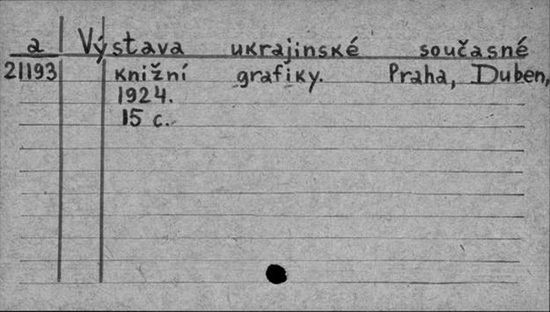 a Výstava ukrajinské současné
21193 knižní grafiky. Praha, Duben,
1924.
15 c.